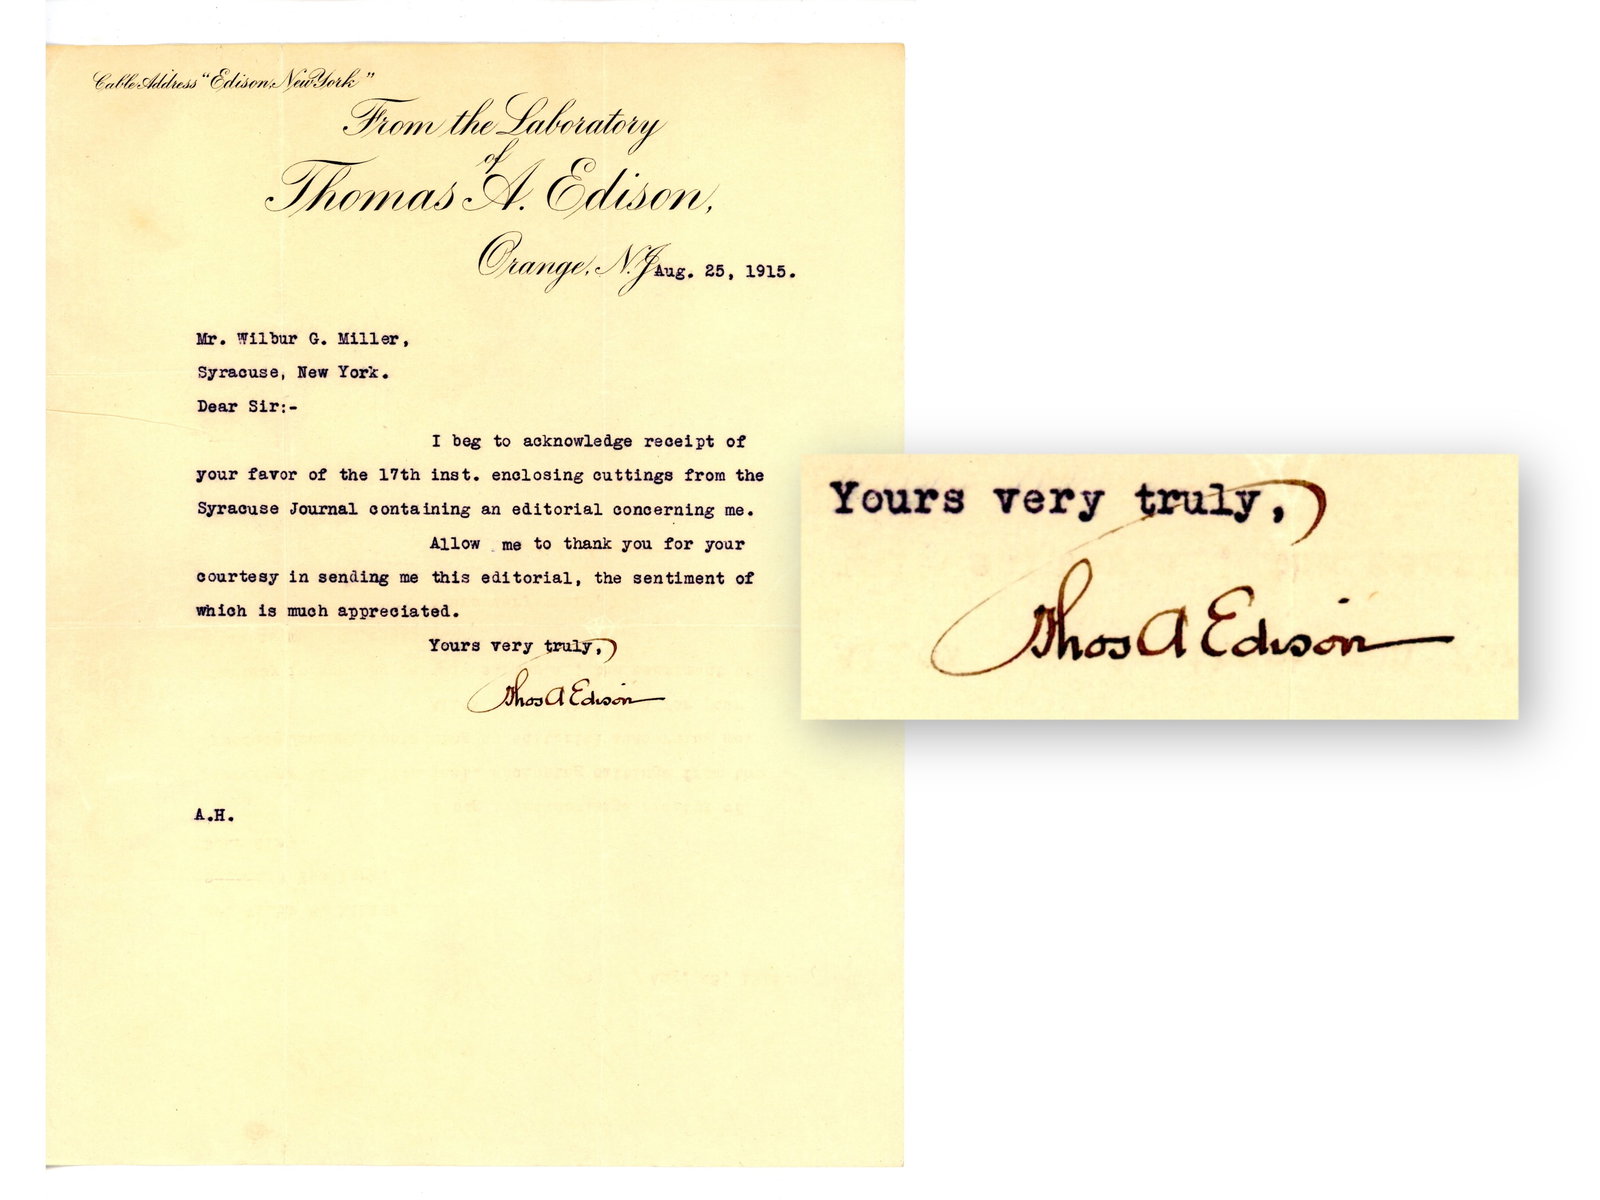 Cable Address "Edison, New York"
From the Laboratory
of
Thomas A. Edison,
Orange, N.J. Aug. 25, 1915.
Mr. Wilbur G. Miller,
Syracuse, New York.
Dear Sir:-
I beg to acknowledge receipt of
your favor of the 17th inst. enclosing cuttings from the
Syracuse Journal containing an editorial concerning me.
Allow me to thank you for your
courtesy in sending me this editorial, the sentiment of
which is much appreciated.
Yours very truly,
Thos A Edison
A.H.
Yours very truly,
Thos A Edison